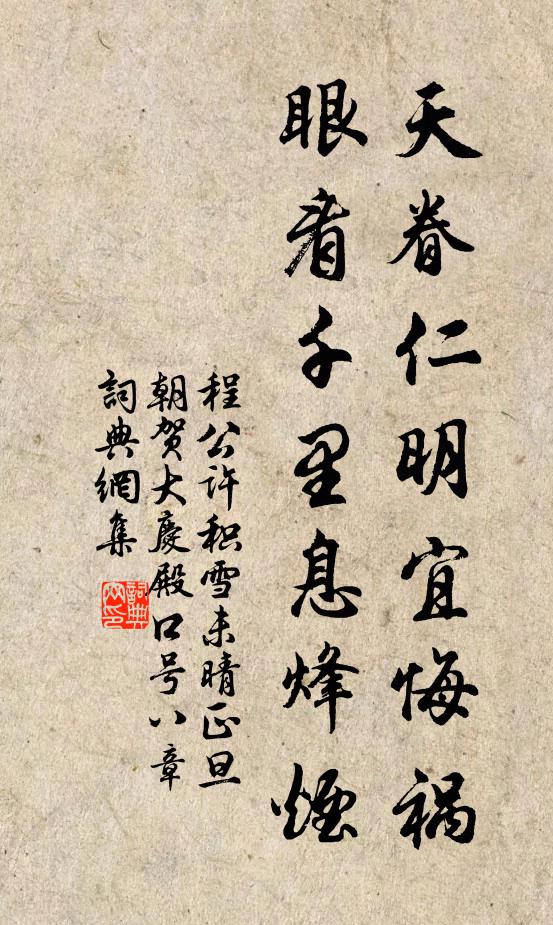 天眷仁明宜悔祸
眼看千里息烽煙
程公许积雪未晴正旦
朝贺大慶殿口号八章
詞典網集
詞典